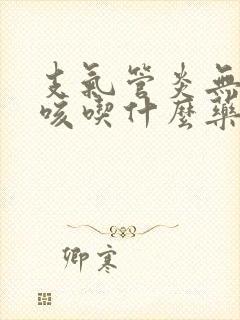 支氣管炎無
咳喫什麼藥
卿寒